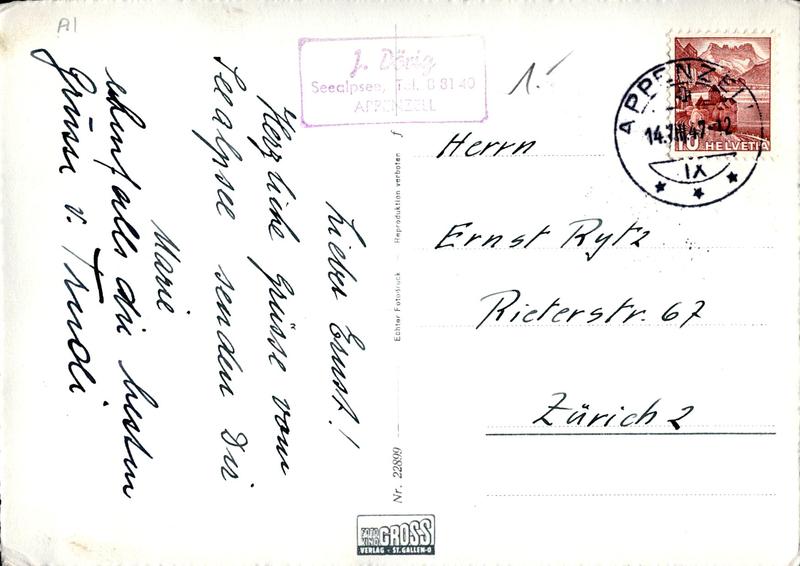 A1
J. Dörig
Seealpsee, Tel. 8 81 40
APPENZELL
1.-
APPENZELL
14.VII.47-12
IX
10 HELVETIA
Lieber Ernst!
Herzliche Grüsse vom
Seealpsee senden Dir
Marie
ebenfalls die besten
Grüsse v. Trudi
Nr. 22899
Echter Fotodruck
Reproduktion verboten
FOTO
GROSS
VERLAG - ST. GALLEN-O
Herrn
Ernst Rytz
Rieterstr. 67
Zürich 2